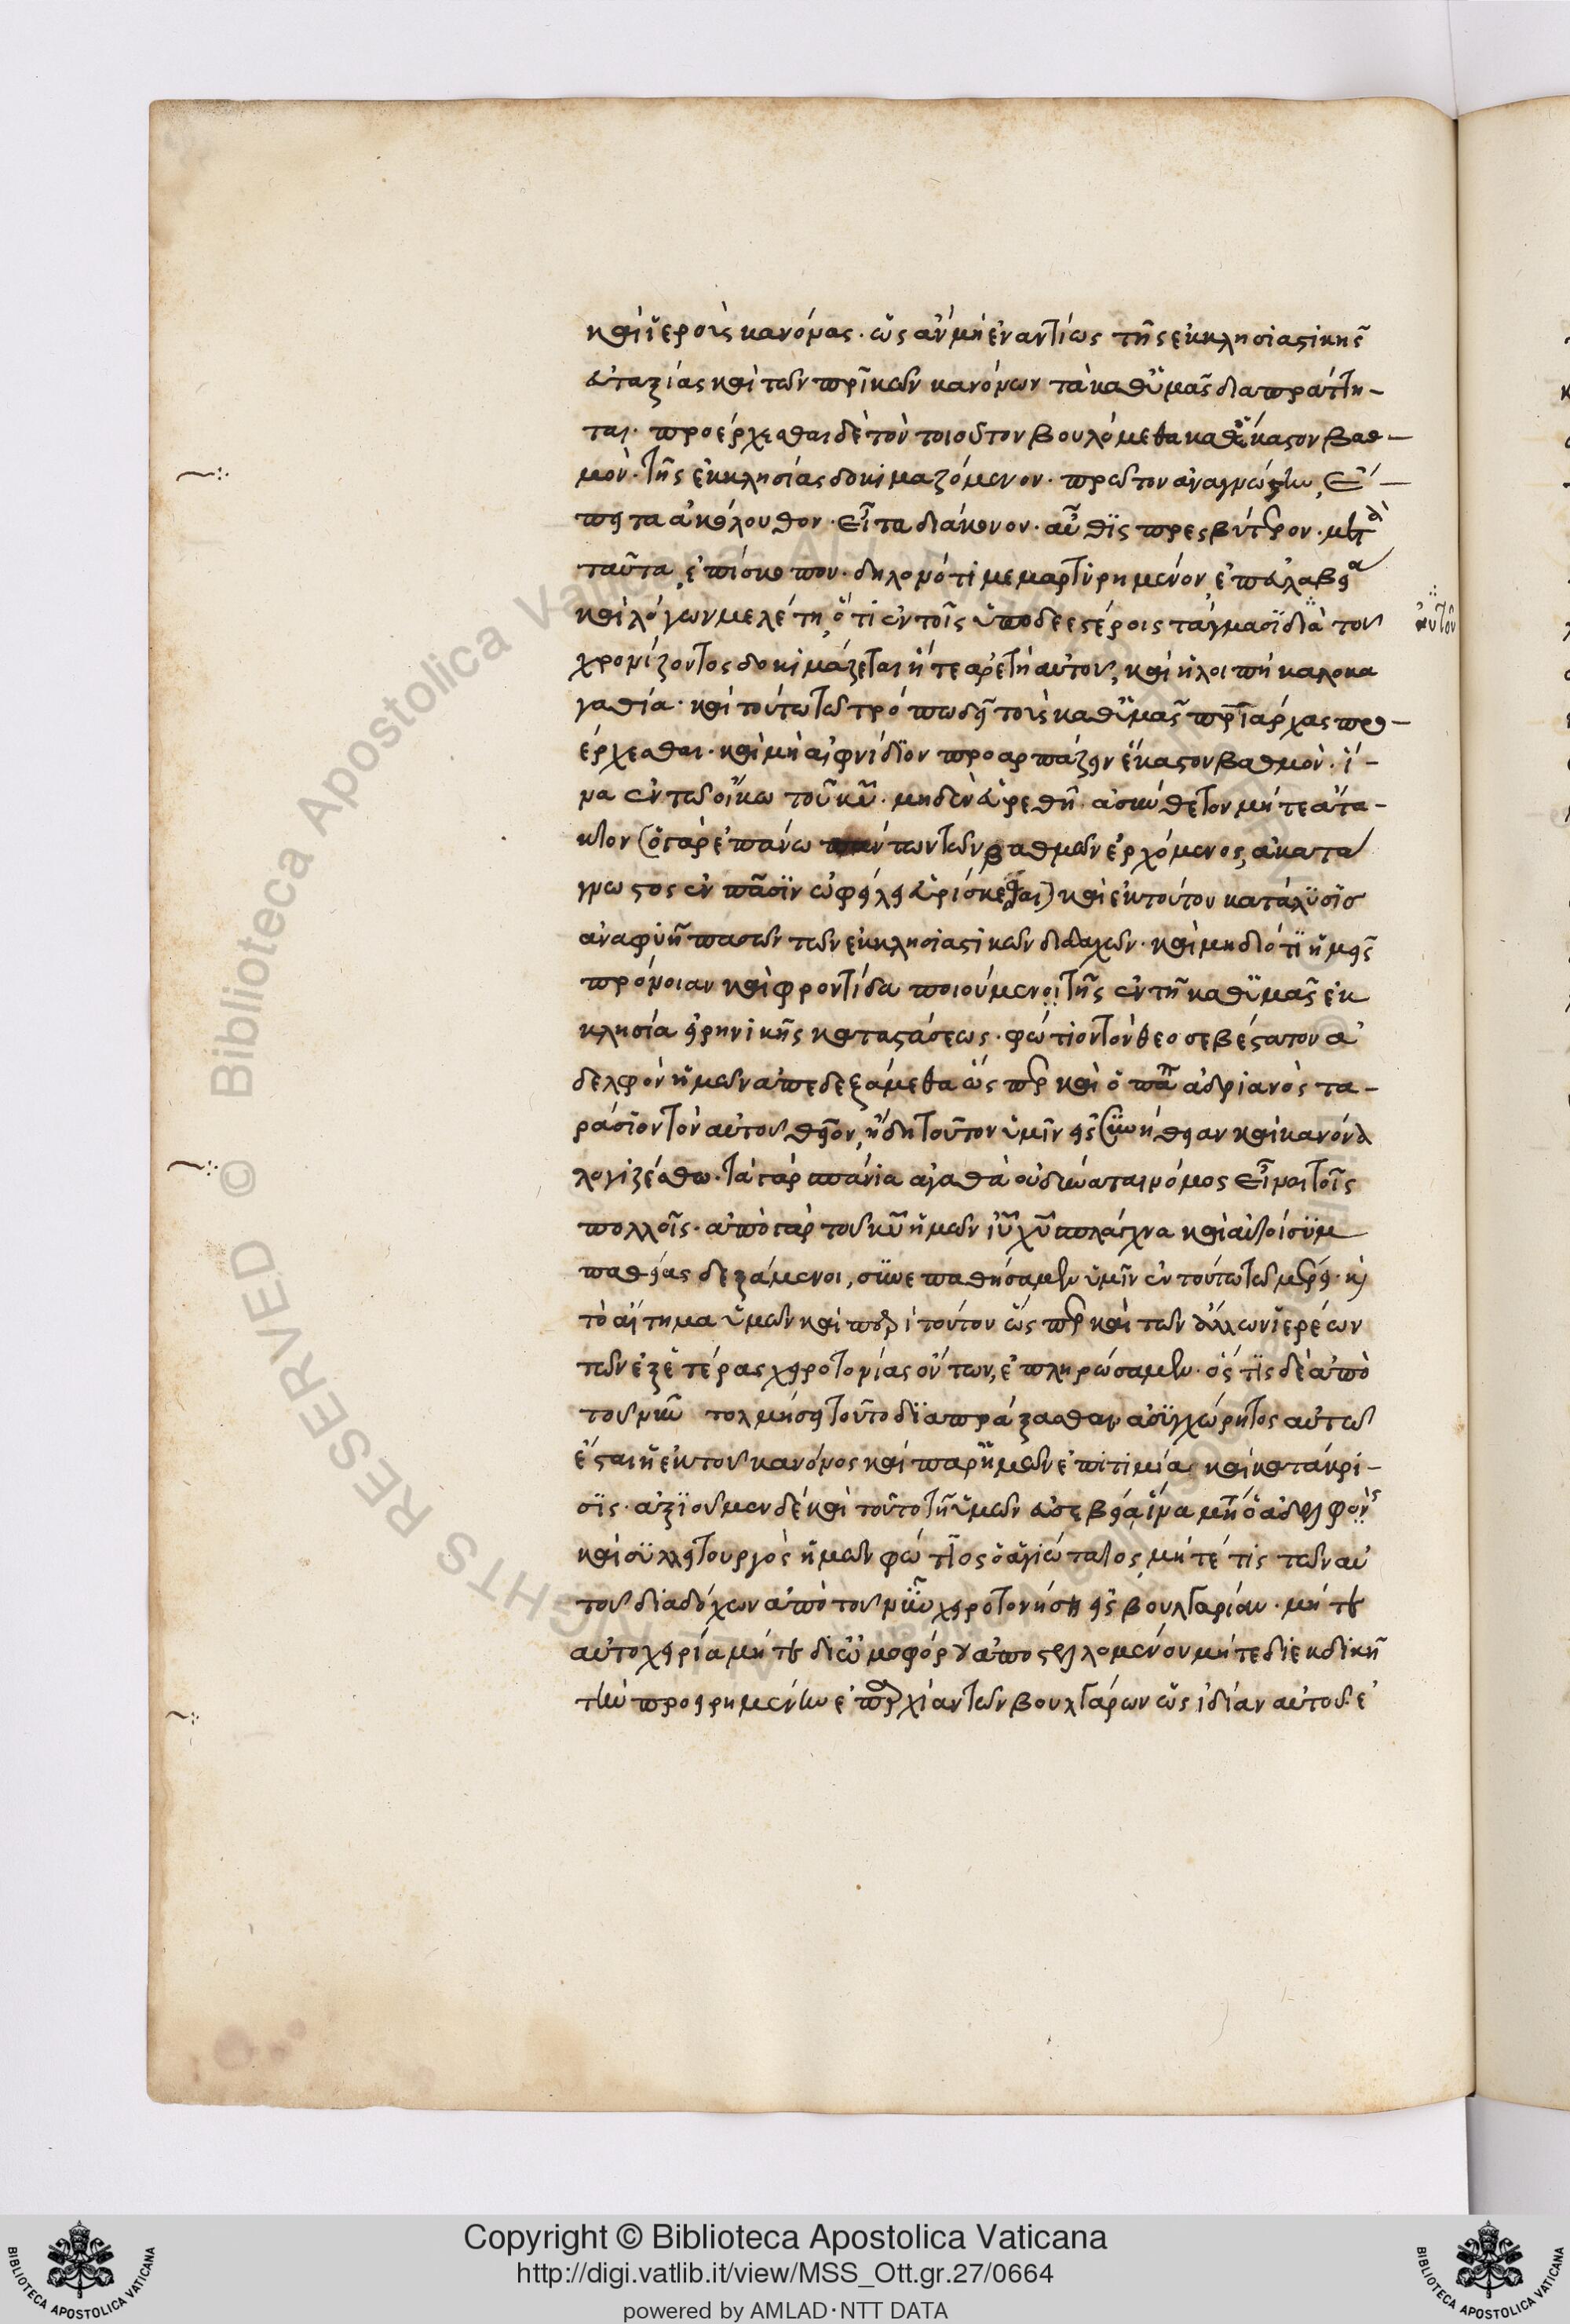 καὶ ἱεροὺς κανόνας· ὡς ἂν μὴ ἐναντίως τῆς ἐκκλησιαστικῆς
εὐταξίας καὶ τῶν πρικῶν κανόνων τὰ καθ' ὑμᾶς διαπράττη-
ται· προέρχεσθαι δὲ τὸν τοιοῦτον βουλόμεθα καθ' ἕκαστον βαθ-
μὸν τῆς ἐκκλησίας δοκιμαζόμενον· πρῶτον ἀναγνώστην, ἔ-
πειτα ἀκόλουθον· εἶτα διάκονον· αὖθις πρεσβύτερον· μετὰ
ταῦτα ἐπίσκοπον· δηλονότι μεμαρτυρημένον ἐπ' εὐλαβείᾳ
καὶ λόγων μελέτη, ὅτι ἐν τοῖς ὑποδεεστέροις τάγμασι διὰ τοῦ
χρονίζοντος δοκιμάζεται ἥ τε ἀρετὴ αὐτοῦ, καὶ ἡ λοιπὴ καλοκα
γαθία· καὶ τούτω τῶ τρόπω δεῖ τοὺς καθ' ὑμᾶς πριάρχας προ-
έρχεσθαι· καὶ μὴ αἰφνίδιον προαρπάζειν ἕκαστον βαθμὸν· ἵ-
να ἐν τῶ οἴκω τοῦ κυ· μηδὲν εὑρεθῆ ἀσύνθετον μήτε ἄτα-
κτον (ὁ γὰρ ἐπάνω πάντων τῶν βαθμῶν ἐρχόμενος, ἀκατα
γνωστος ἐν πᾶσιν ὠφείλει εὑρίσκεσθαι) καὶ ἐκ τούτου κατάλυσις
ἀναφυῆ πασῶν τῶν ἐκκλησιαστικῶν διδαχῶν· καὶ μὴ διότι ἡμεῖς
πρόνοιαν καὶ φροντίδα ποιούμενοι τῆς ἐν τῆ καθ' ὑμᾶς ἐκ
κλησία εἰρηνικῆς καταστάσεως· φώτιον τὸν θεοσεβέστατον ἀ
δελφὸν ἡμῶν ἀπεδεξάμεθα ὥσπερ καὶ ὁ πάπα ἀδριανὸς τα-
ράσιον τὸν αὐτοῦ θεῖον, ἤδη τοῦτον ὑμῖν εἰς συνήθειαν καὶ κανόνα
λογιζέσθω· τὰ γὰρ σπάνια ἀγαθὰ οὐ δύναται νόμος εἶναι τοῖς
πολλοῖς· ἀπὸ γὰρ τοῦ κυ ἡμῶν ιυ χυ σπλάγχνα καὶ αὐτοὶ συμ
παθείας δεξάμενοι, συνεπαθήσαμεν ὑμῖν ἐν τούτω τῶ μέρει· καὶ
τὸ αἴτημα ὑμῶν καὶ περὶ τούτου ὥσπερ καὶ τῶν ἄλλων ἱερέων
τῶν ἐξ ἑτέρας χειροτονίας ὄντων, ἐπληρώσαμεν· ὅστις δὲ ἀπὸ
τοῦ νῦν τολμήσει τοῦτο διαπράξασθαι, ἀσυγχώρητος αὐτῶ
ἔσται ἡ ἐκ τοῦ κανόνος καὶ παρ' ἡμῶν ἐπιτιμίας καὶ κατάκρι-
σις· ἀξιοῦμεν δὲ καὶ τοῦτο τῆ ὑμῶν εὐσεβεία, ἵνα μὴ ὁ ἀδελφὸς
καὶ συλλειτουργὸς ἡμῶν φώτιος ὁ ἁγιώτατος, μήτέ τις τῶν αὐ
τοῦ διαδόχων ἀπὸ τοῦ νῦν χειροτονήση εἰς βουλγαρίαν· μήτε
αὐτοχειρία μήτε δι' ὠμοφόρου ἀποστελλομένου μήτε διεκδικῆ
τὴν προειρημένην ἐπαρχίαν τῶν βουλγάρων ὡς ἰδίαν αὐτοῦ· ἐ
Copyright © Biblioteca Apostolica Vaticana
http://digi.vatlib.it/view/MSS_Ott.gr.27/0664
powered by AMLAD·NTT DATA
BIBLIOTECA APOSTOLICA VATICANA
BIBLIOTECA APOSTOLICA VATICANA
Biblioteca Apostolica Vaticana
ALL RIGHTS RESERVED ©